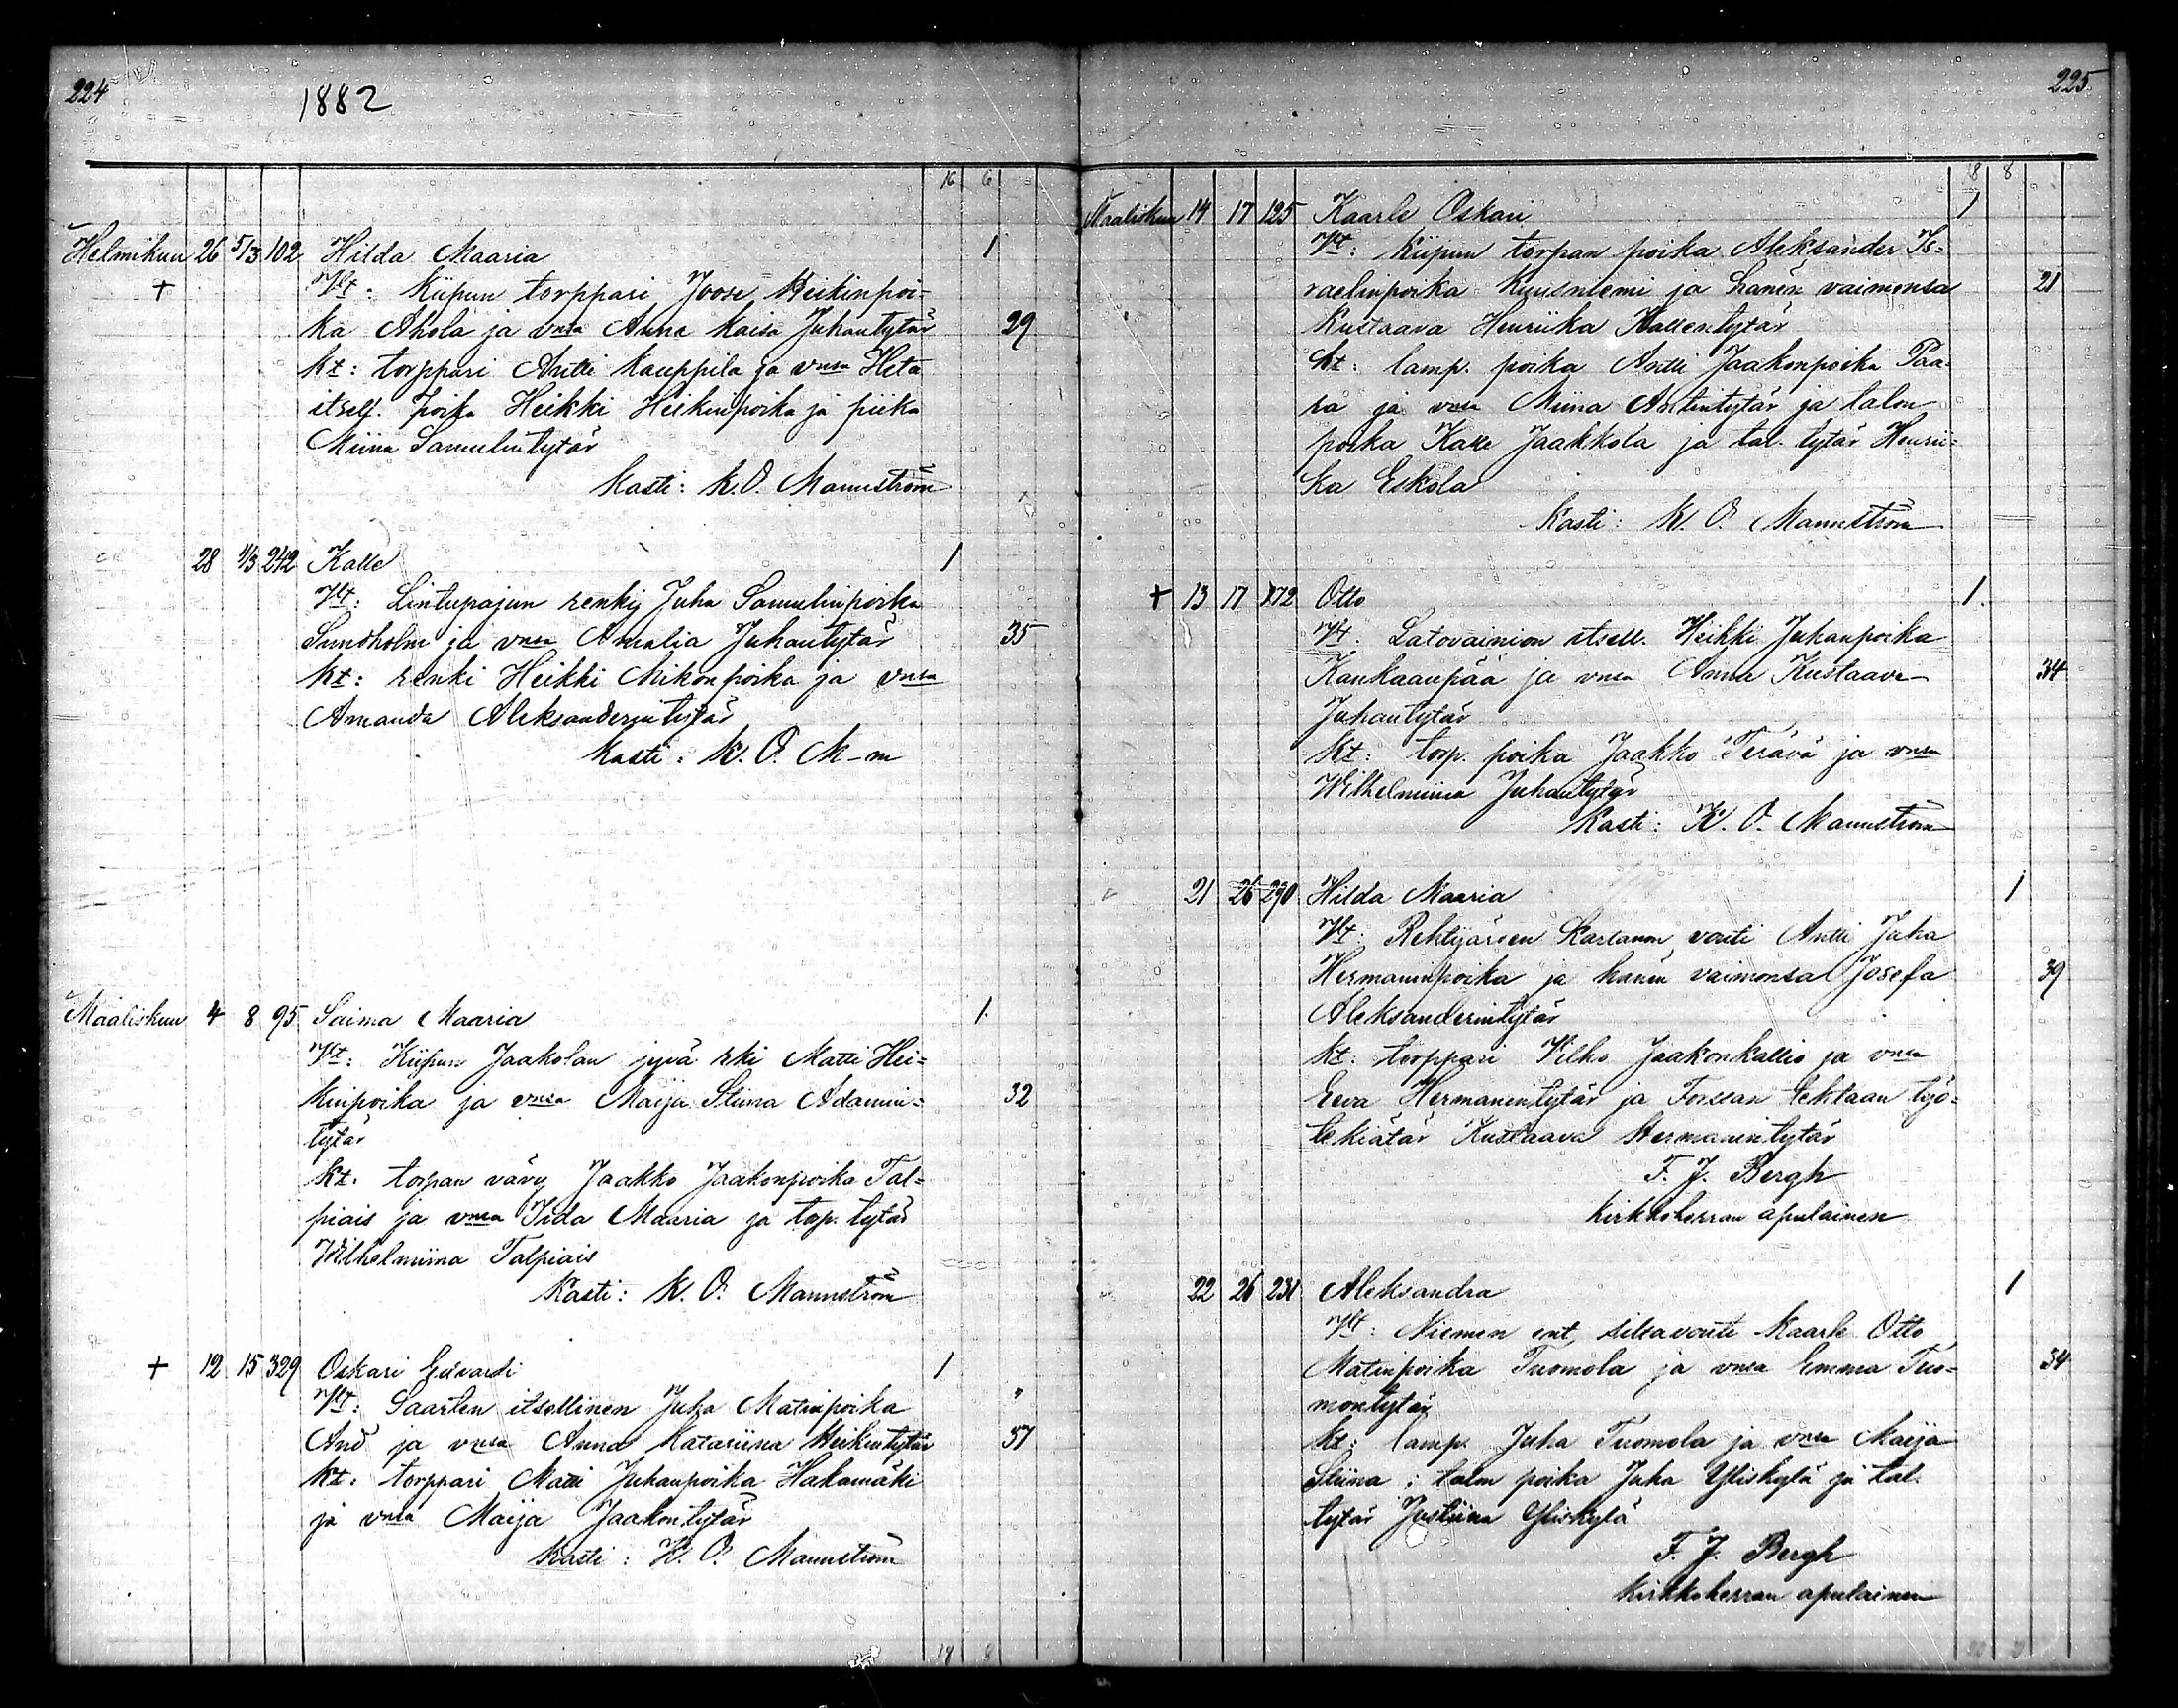 224
1882
16 6
Helmikuu 26 5/3 102 Hilda Maaria 1
+ Vt: Kiipun torppari Joose Heikinpoi-
ka Ahola ja vnsa Anna Kaisa Juhantytär 29
Kt: torppari Antti Kauppila ja vnsa Heta
itsell. poika Heikki Heikinpoika ja piika
Miina Samulintytär
Kasti: K. O. Mannström
28 4/3 242 Kalle 1
Vt: Lintupajun renkij Juha Samulinpoika
Sundholm ja vnsa Amalia Juhantytär 35
Kt: renki Heikki Mikonpoika ja vnsa
Amanda Aleksanderintytär
Kasti: K. O. M-m
Maaliskuu 4 8 95 Saima Maaria 1
Vt: Kiipun Jaakolan jyvä rki Matti Hei=
kinpoika ja vnsa Maija Stiina Adamin= 32
tytär
Kt: torpan vävy Jaakko Jaakonpoika Tal=
piais ja vnsa Iida Maaria ja torp. tytär
Wilhelmiina Talpiais
Kasti: K. O. Mannström
+ 12 15 329 Oskari Edvardi 1
Vt: Saarlen itsellinen Juha Matinpoika "
And ja vnsa Anna Katariina Heikintytär 57
Kt: torppari Matti Juhanpoika Hakamäki
ja vnsa Maija Jaakontytär
Kasti: K. O. Mannström
225
18 8
Maaliskuu 14 17 125 Kaarle Oskari 1
Vt: Kiipun torpan poika Aleksander Is=
raelinpoika Kuusniemi ja hänen vaimonsa 21
Kustaava Henriika Kallentytär
Kt: lamp. poika Antti Jaakonpoika Paa-
pa ja vnsa Miina Antintytär ja talon
poika Kalle Jaakkola ja tal. tytär Henrii=
ka Eskola
Kasti: K. O. Mannström
+ 13 17 172 Otto 1
Vt. Latovainion itsell. Heikki Juhanpoika
Kankaanpää ja vnsa Anna Kustaava 34
Juhantytär
Kt: torp. poika Jaakko Terävä ja vnsa
Wilhelmiina Juhantytär
Kasti: K. O. Mannström
21 26 290 Hilda Maaria 1
Vt: Rehtijärven Kartanon vouti Antti Juha
Hermaninpoika ja hänen vaimonsa Josefa 39
Aleksanderintytär
Kt: torppari Vilho Jaakonkallio ja vnsa
Eeva Hermanintytär ja Forssan tehtaan työ=
tekiätär Kustaava Hermanintytär
F. J. Bergh
kirkkoherran apulainen
22 26 231 Aleksandra 1
Vt: Niemen ent. siltavouti Kaarle Otto
Matinpoika Tuomola ja vnsa Emma Tuo= 34
montytär
Kt: lamp. Juha Tuomola ja vnsa Maija
Stiina; talon poika Juha Yliskylä ja tal.
tytär Justiina Yliskylä
F. J. Bergh
kirkkoherran apulainen